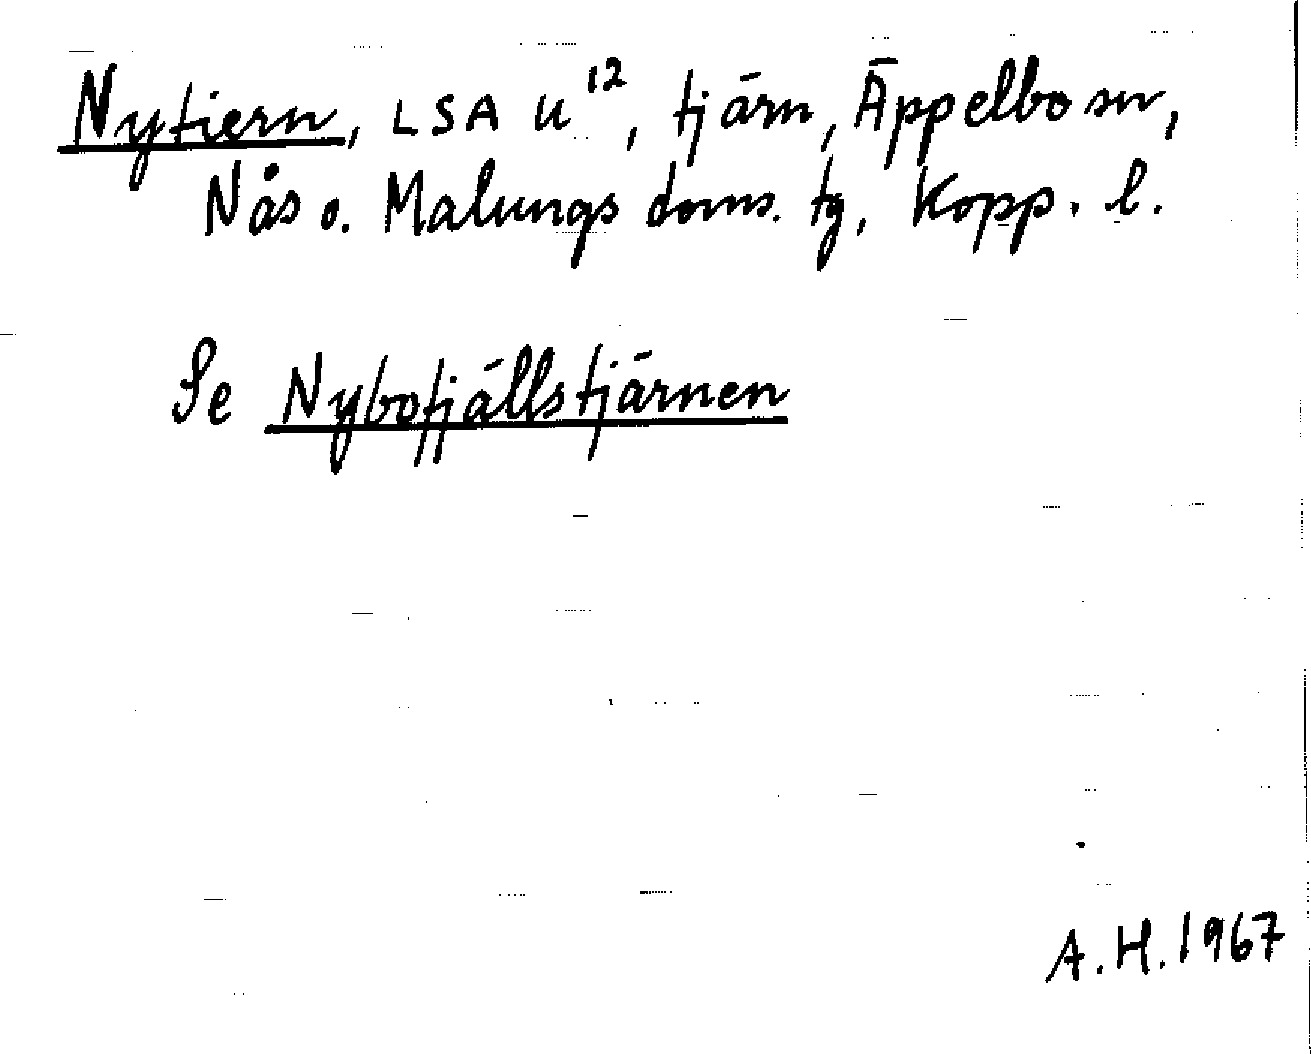 Nytiern, LSA U¹², tjärn, Äppelbo sn,
Nås o. Malungs doms. tg, Kopp. l.
Se Nybofjällstjärnen
A.H. 1967